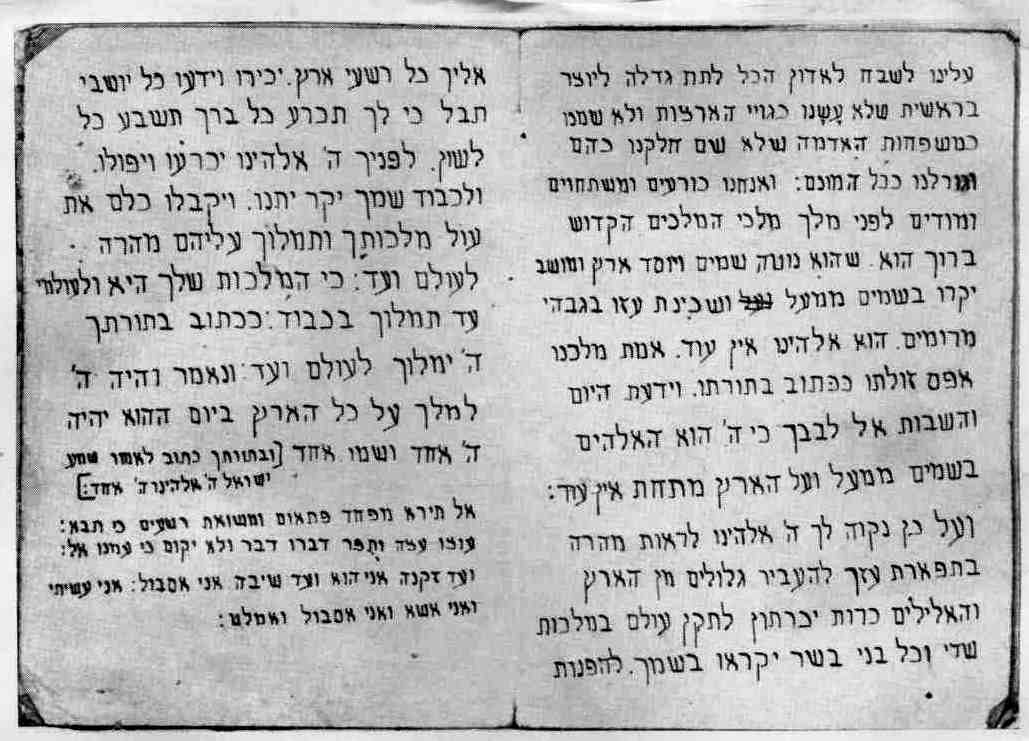 עלינו לשבח לאדון הכל לתת גדלה ליוצר
בראשית שלא עָשָנו כגויי הארצות ולא שמנו
כמשפחות האדמה שלא שם חלקנו כהם
וגורלנו ככל המונם: ואנחנו כורעים ומשתחוים
ומודים לפני מלך מלכי המלכים הקדוש
ברוך הוא. שהוא נוטה שמים ויוסד ארץ ומושב
יקרו בשמים ממעל ושכינת עזו בגבהי
מרומים. הוא אלהינו אין עוד. אמת מלכנו
אפס זולתו ככתוב בתורתו. וידעת היום
והשבות אל לבבך כי ה' הוא האלהים
בשמים ממעל ועל הארץ מתחת אין עוד:
ועל כן נקוה לך ה' אלהינו לראות מהרה
בתפארת עזך להעביר גלולים מן הארץ
והאלילים כרות יכרתון לתקן עולם במלכות
שדי וכל בני בשר יקראו בשמך. להפנות
אליך כל רשעי ארץ. יכירו וידעו כל יושבי
תבל כי לך תכרע כל ברך תשבע כל
לשון. לפניך ה' אלהינו יכרעו ויפולו.
ולכבוד שמך יקר יתנו. ויקבלו כלם את
עול מלכותך ותמלוך עליהם מהרה
לעולם ועד: כי המלכות שלך היא ולעולמי
עד תמלוך בכבוד: ככתוב בתורתך
ה' ימלוך לעולם ועד: ונאמר והיה ה'
למלך על כל הארץ ביום ההוא יהיה
ה' אחד ושמו אחד [ובתורתך כתוב לאמר שמע
ישראל ה' אלהינו ה' אחד:]
אל תירא מפחד פתאום ומשואת רשעים כי תבא:
עוצו עצה ותֻפר דברו דבר ולא יקום כי עמנו אל:
ועד זקנה אני הוא ועד שיבה אני אסבול: אני עשיתי
ואני אשא ואני אסבול ואמלט: